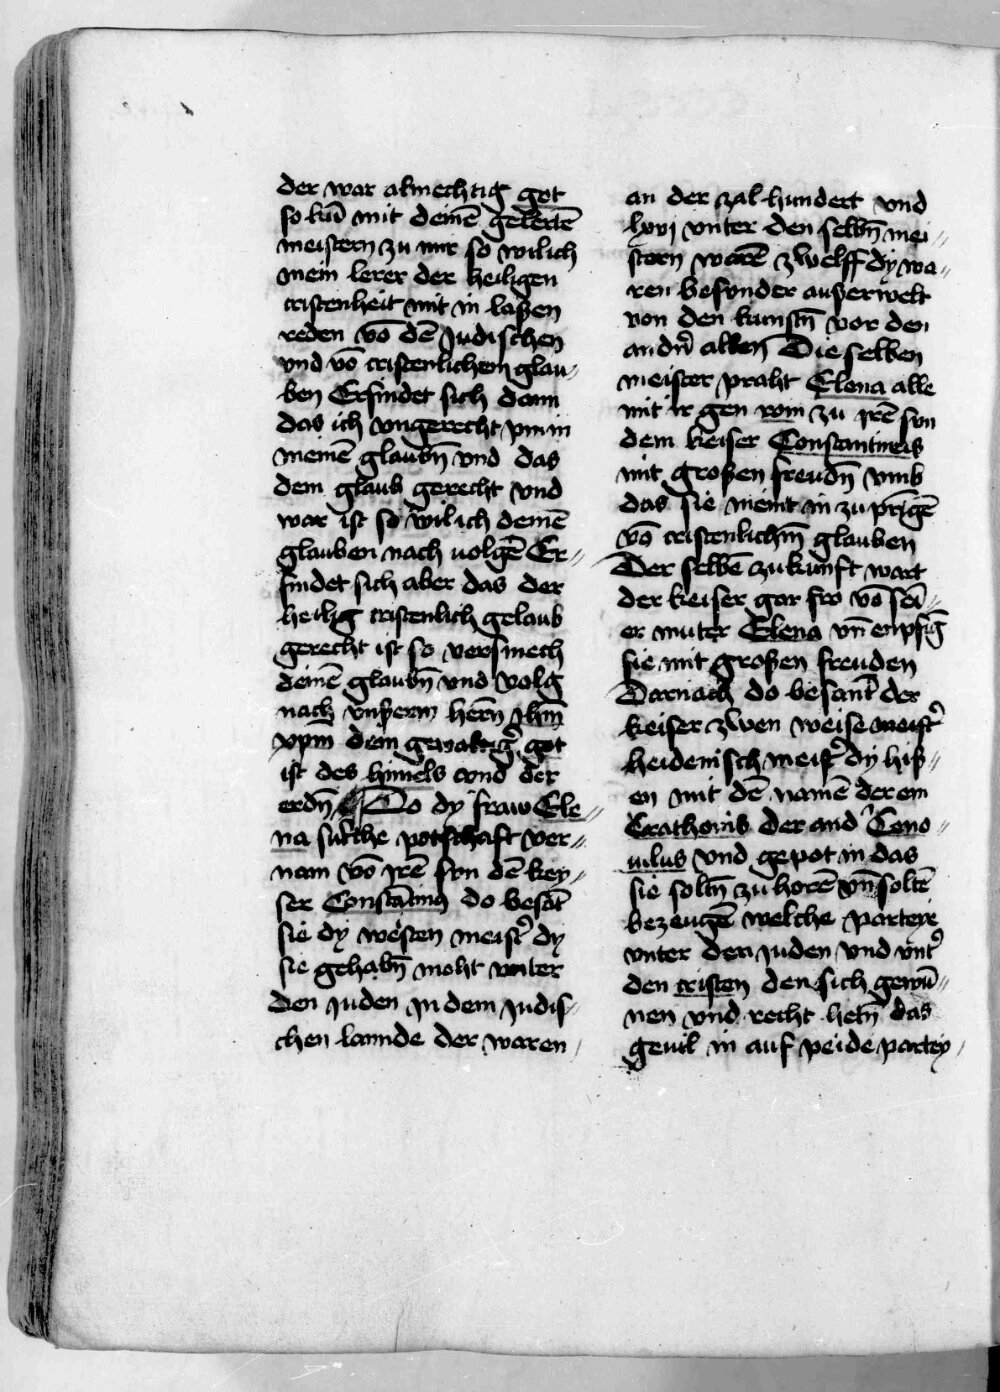 der war almechtig got
so kū mit deinē gelertē
meistern zu mir so wil ich
mein lerer der heiligen
cristenheit mit in laßen
reden vō dē Judischen
vnd vō cristenlichem glau⸗
ben Erfindet sich dann
das ich vngerecht pin in
meinē glaubn̄ vnd das
dein glaub gerecht vnd
war ist so wil ich deinē
glauben nach uolgē Er⸗
findet sich aber das der
heilig cristenlich gelaub
gerecht ist so versmech
deinē glaubn̄ vnd volg
nach vnßerm hern̄ Jhm̄
xpm̄ dem gewaltigē got
ist des himels vnd der
erdn̄ Do dy fraw Ele⸗
na sulche potschaft ver⸗
nam vō Jrē sun dē key⸗
ser Constātinus do besāt
sie dy westen meist̄ dy
sie gehabn̄ moht vnter
den Juden Jn dem Judis⸗
chen lannde der waren
an der zal hundert vnd
lxvj vnter den selbn̄ mei⸗
stern warē zwelff dy wa⸗
ren besvnder außerwelt
von den kunstn̄ vor den
andn̄ allen Die selben
meister praht Elena alle
mit ir gen rom zu Jrē sun
dem keiser Constantineis
mit großen freudn̄ vmb
das sie meint in zu prīgē
vō cristenlichm̄ glauben
Der selbē zukunft wart
der keiser gar fro vō sei⸗
er muter Elena vn̄ enpfīg
sie mit großen freuden
Darnach do besant̄ der
keiser zwen weise meist̄
heidenisch meist̄ dy hiß⸗
en mit dē namē der ein
Crathonis der and̄ Ceno⸗
uilus vnd gepot in das
sie soltn̄ zu horē vn̄ soltē
bezeugē welche parteye
vnter den Juden vnd vnt̄
den cristen den sich gewū⸗
nen vnd recht hetn̄ das
geuil in auf peide partey